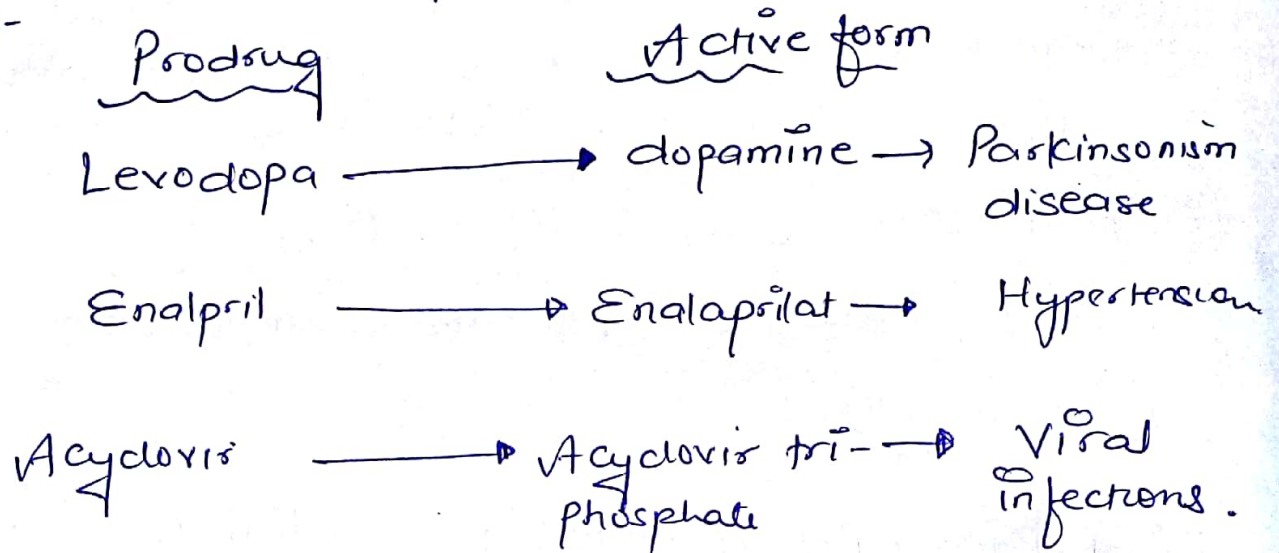 Prodrug Active form
Levodopa → dopamine → Parkinsonism
disease
Enalpril → Enalaprilat → Hypertension
Acyclovir → Acyclovir tri- → Viral
phosphate infections.